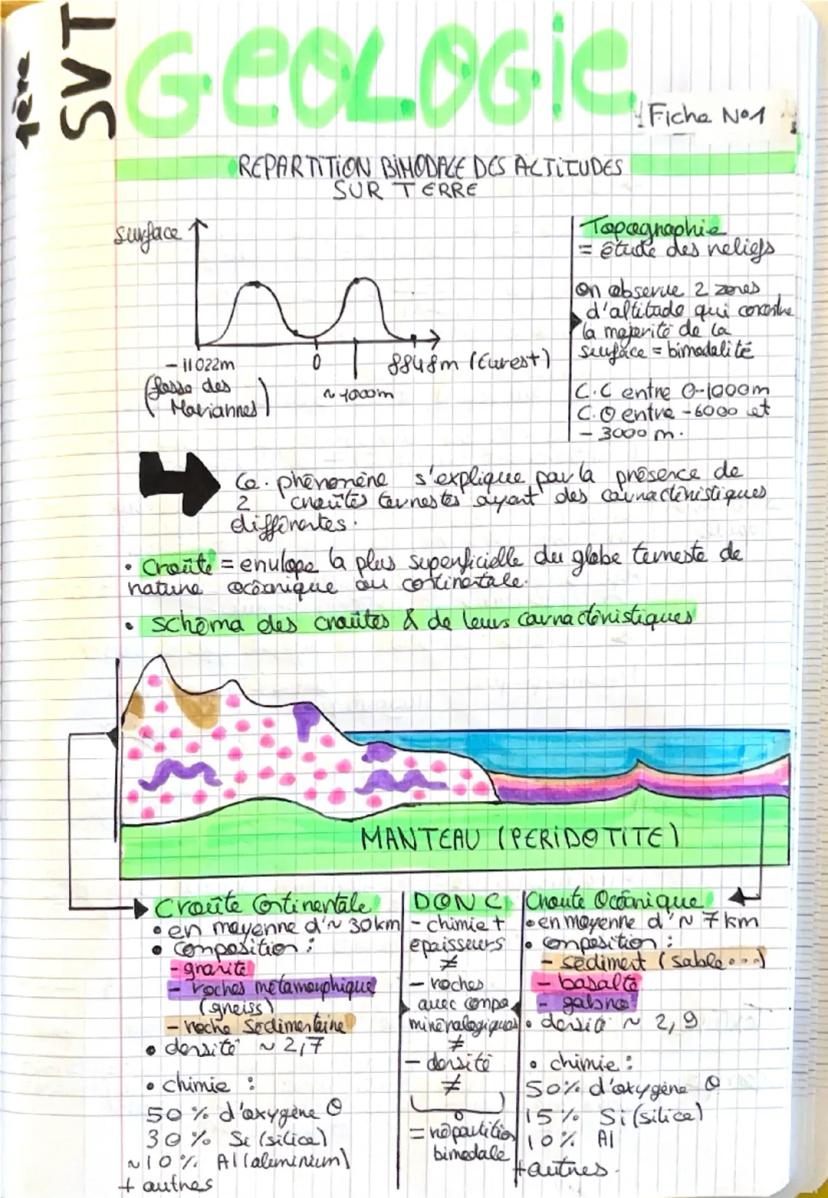 1ère
SVT
GEOLOGIE
Fiche N°1
REPARTITION BIMODALE DES ALTITUDES
SUR TERRE
surface
-11022m
(fosse des
Mariannes)
0
~1000m
8848m (Everest)
Topographie
= étude des reliefs
On observe 2 zones
d'altitude qui concentre
la majorité de la
surface = bimodalité
C.C entre 0-1000m
C.O entre -6000 et
-3000m.
Ce phénomène s'explique par la présence de
2 croûtes terrestes ayant des caractéristiques
différentes.
• croûte = enveloppe la plus superficielle du globe terreste de
nature océanique ou continentale.
• schéma des croûtes & de leurs caractéristiques
MANTEAU (PERIDOTITE)
Croûte Continentale
• en moyenne d'~ 30km
• composition :
- granite
- roches métamorphique
(gneiss)
- roche sédimentaire
• densité ~ 2,7
• chimie :
50% d'oxygène O
30% Si (silica)
~10% Al (aluminium)
+ autres
DONC
- chimie +
epaisseurs
≠
- roches
avec compo
minéralogiques
≠
- densité
≠
= répartition
bimodale
Croute Océanique
• en moyenne d'~ 7km
• composition :
- sédiment (sable...)
- basalte
- gabbro
• densité ~ 2,9
• chimie :
50% d'oxygène O
15% Si (silica)
10% Al
+autres.